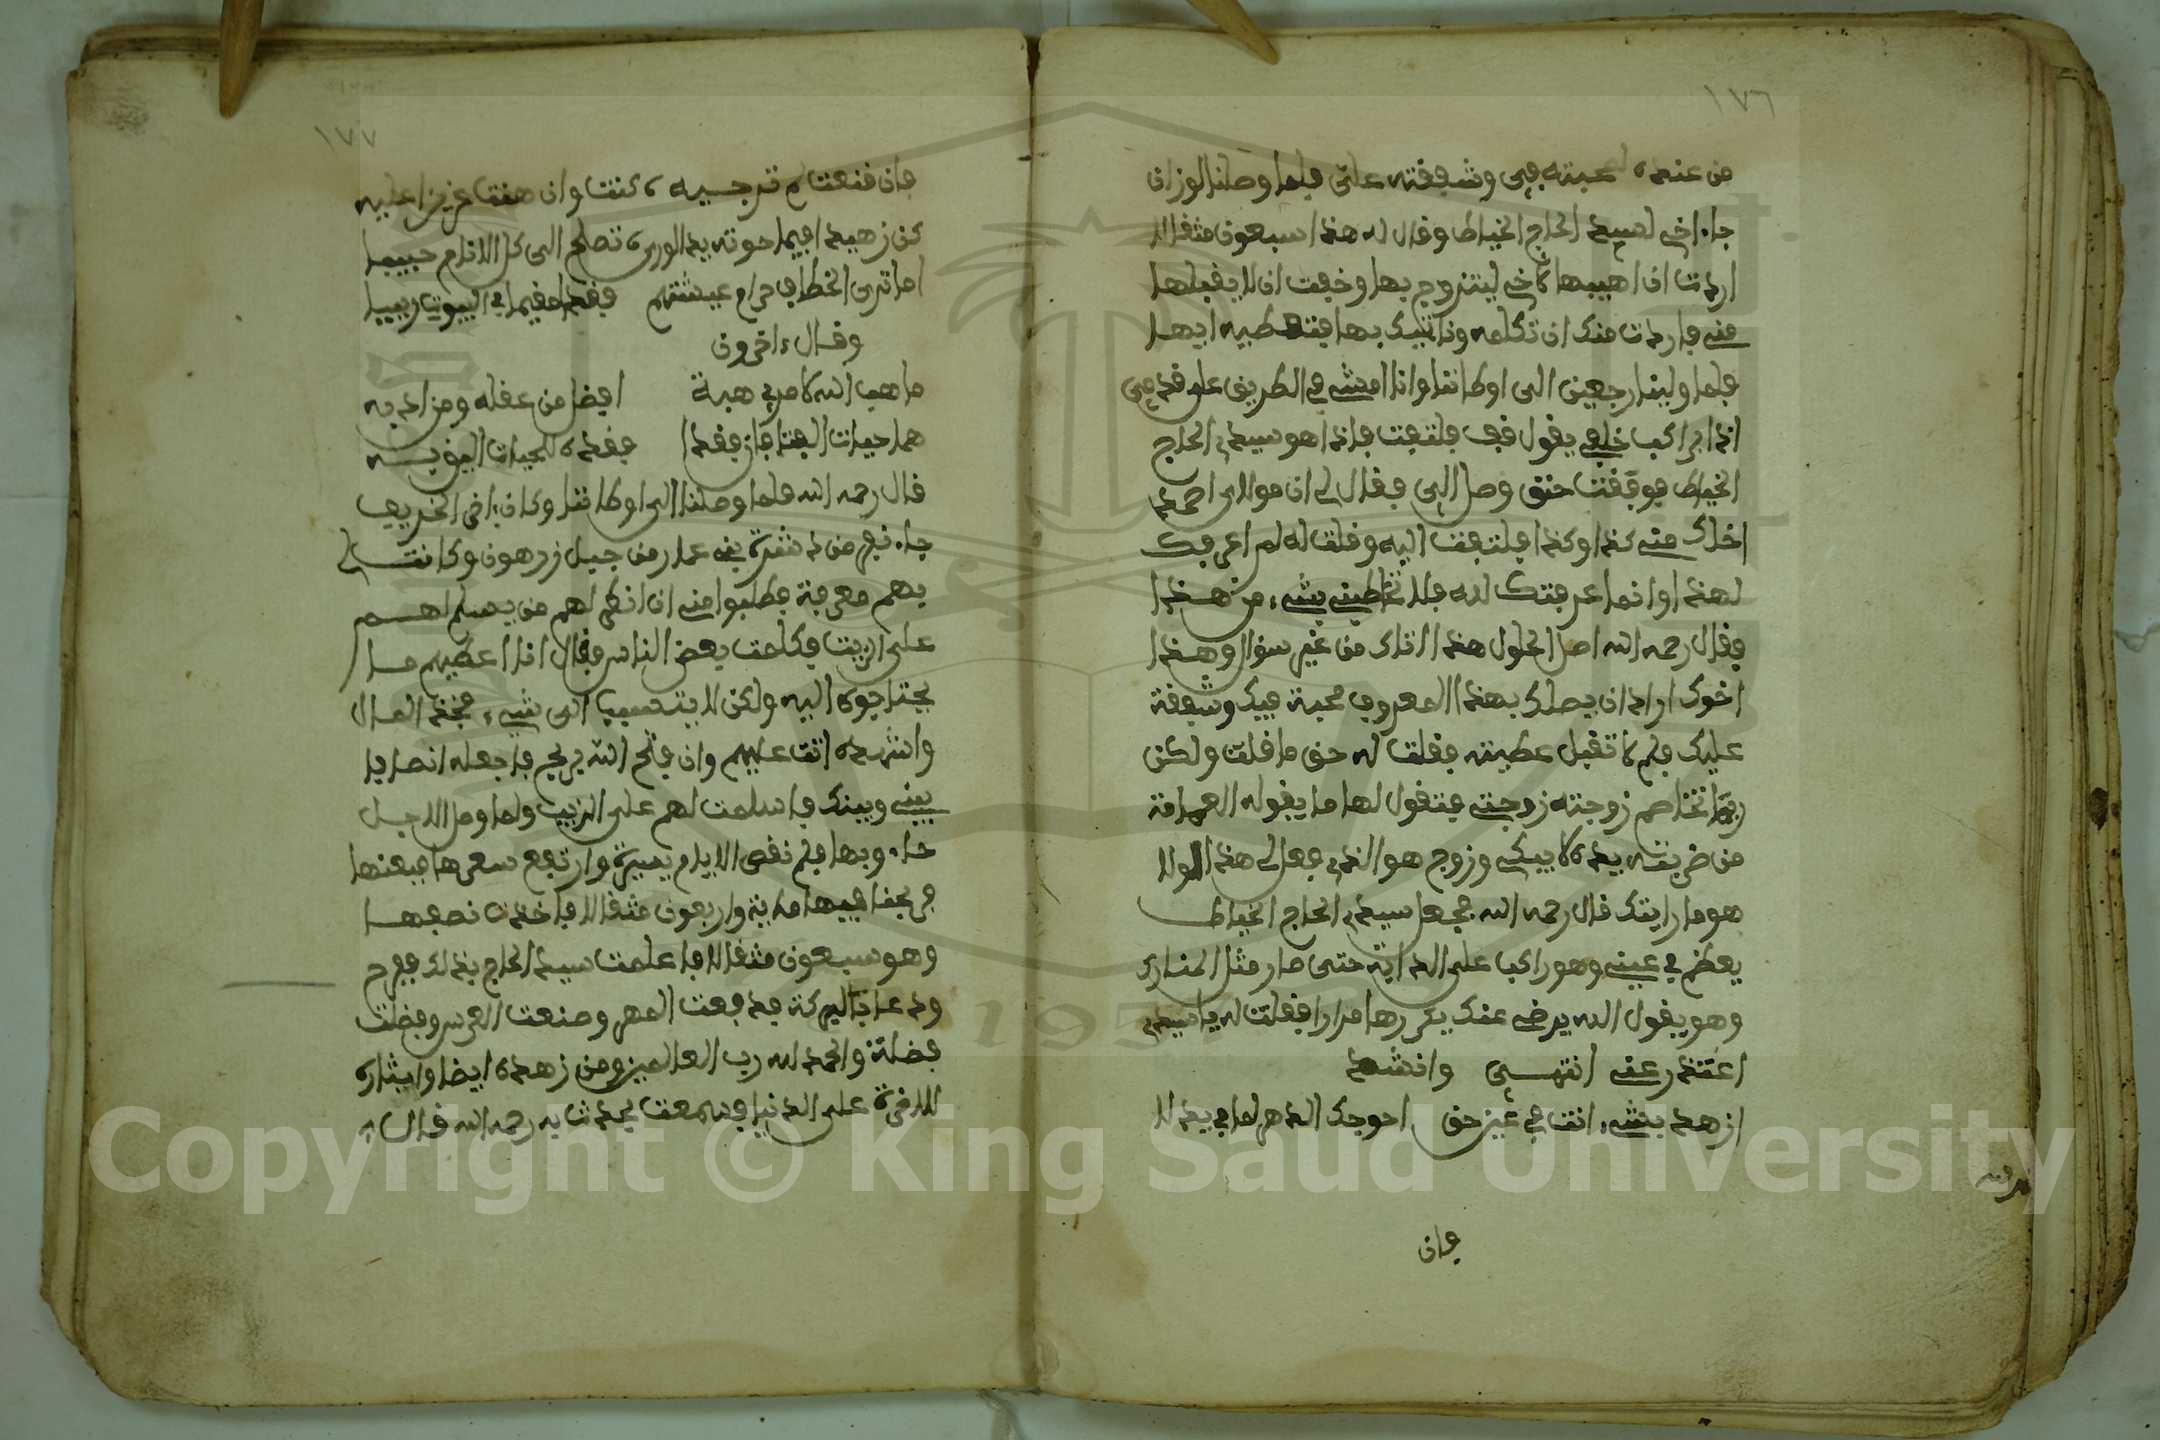 ١٧٦
من عنده لمحبته في وشفقته علي فلما وصلنا لوزان
جاء اخي لسيد الحاج الخياط وقال له هذا سبعون مثقالا
اردت ان اهبها لاخي ليتزوج بها وخفت ان لا يقبلها
مني فاردت منك ان تكلمه وناتيك بها فتعطيه ايها
فلما ولينا رجعين الى اوطاننا وانا امشي في الطريق على قدمي
اذا براكب خلفي يقول قف فلتفت فاذا هو سيدي الحاج
الخياط فوقفت حتى وصل الي فقال لي ان مولاي احمد
اخاك مني كذا وكذا فلتفت اليه وقلت له لم اعرفك
لهذا وانما عرفتك لله فلا تخاطبني بشيء من هذا
فقال رحمه الله اصل الحلول هذا اتاك من غير سؤال وهذا
اخوك اراد ان يصلك بهذا المعروف محبة فيك وشفقة
عليك فلم لا تقبل عطيته فقلت له حتى ما قلت ولكن
ربما تخاصم زوجته زوجتي فتقول لها ما يقوله العرافة
من ضربته يده لا يبكي وزوج هو الذي فعل لي هذا اولا
هو ما رايتك قال رحمه الله فجعل سيدي الحاج الخياط
يعظم في عيني وهو راكب على الدابة حتى صار مثل المنارة
وهو يقول الله يرضى عنك يكررها مرارا فقلت له يا سيدي
اعتذر عني انتهى وانشد
ازهد بشيء انت في غير حق احوجك الدهر لما في يد لا
فان
١٧٧
فان قنعت لم ترجيه كنت وان هنت عزيزا عليه
كن زهيدا فيما حوته يد الورى تصلح الى كل الانام حبيبا
اما ترى الخطاف حرام عيشتهم فغدا مقيما في البيوت ربيبا
وقال اخرون
ما هب الله لامرئ هبة افضل من عقله ومن ادبه
هما حيات الفتى فان فقدا ففقده للحيات اليق به
قال رحمه الله فلما وصلنا الى اوطاننا وكان اخر الخريف
جاء نفر من دشرة بني عمار من جبل زرهون وكانت لي
بهم معرفة فطلبوا مني ان انظر لهم من يسلم لهم
على الزبيب فكلمت بعض الناس فقال انا اعطيهم ما
يحتاجون اليه ولكن لا يتسببا الى شيء فخذ المال
واشهده انت عليهم وان فتح الله بربح فاجعله انصافا
بيني وبينك فاسلمت لهم على الزبيب ولما وصل الاجل
جاءوا بها فلم تقم الا ايام يسيرة وارتفع سعرها فبعتها
فربحنا فيها مائة واربعون مثقالا فاخذت نصفها
وهو سبعون مثقالا فاعلمت سيدي الحاج بذلك ففرح
ودعا بالبركة فدفعت المهر وصنعت العرس وفضلت
فضلة والحمد لله رب العالمين ومن زهده ايضا وايثاره
للاخرة على الدنيا فسمعت يحدثنا به رحمه الله قال